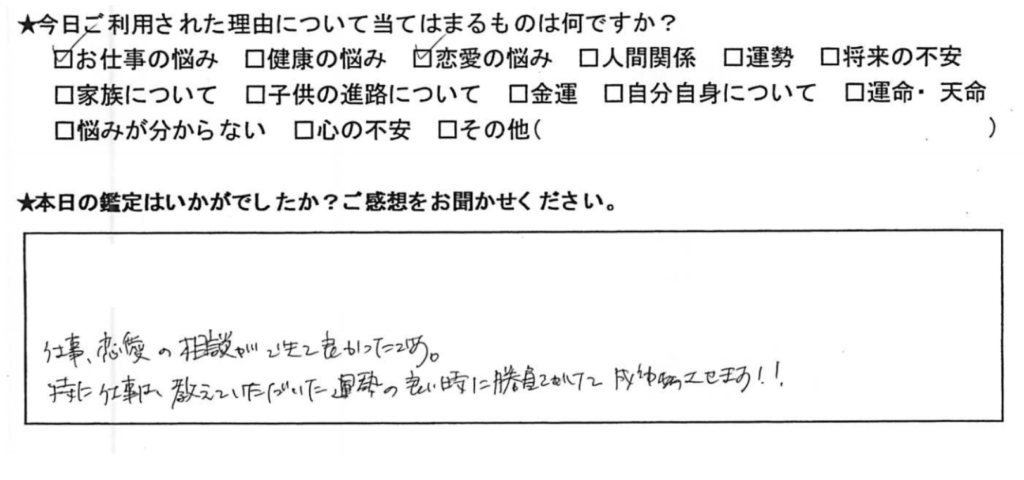 ★今日ご利用された理由について当てはまるものは何ですか？
☑お仕事の悩み　□健康の悩み　☑恋愛の悩み　□人間関係　□運勢　□将来の不安
□家族について　□子供の進路について　□金運　□自分自身について　□運命・天命
□悩みが分からない　□心の不安　□その他(　　　)
★本日の鑑定はいかがでしたか？ご感想をお聞かせください。
仕事、恋愛の相談ができて良かったです。
特に仕事は、教えていただいた運勢の良い時に勝負をかけて させます！！